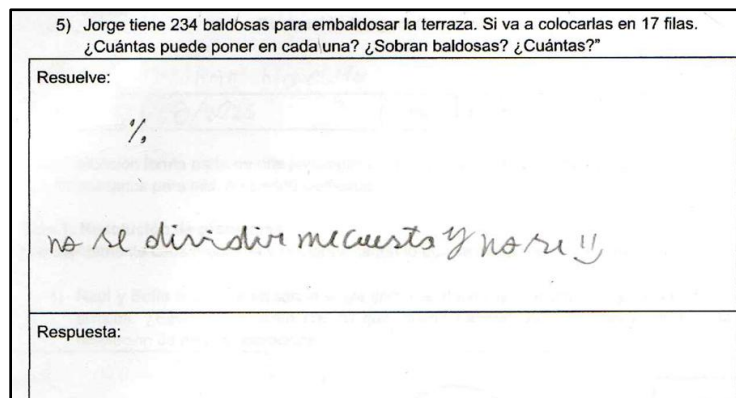 5) Jorge tiene 234 baldosas para embaldosar la terraza. Si va a colocarlas en 17 filas.
¿Cuántas puede poner en cada una? ¿Sobran baldosas? ¿Cuántas?”
Resuelve:
%
no se dividir me cuesta y no se !!
Respuesta: